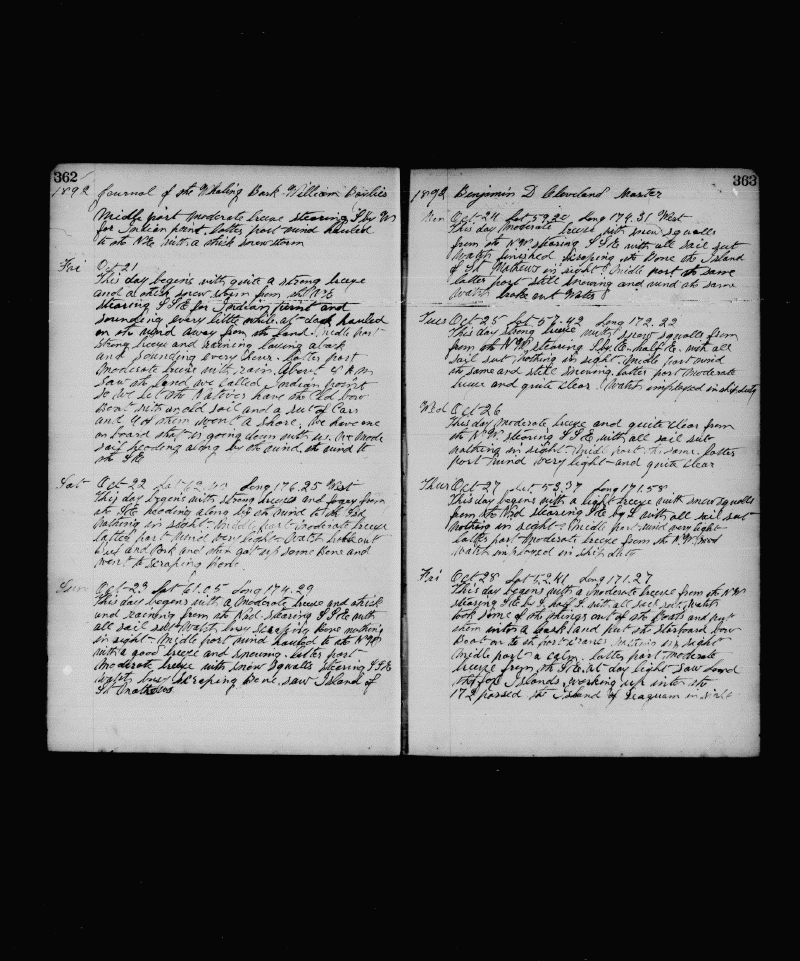 362
1892 Journal of the Whaling Bark William Baylies
Midle part moderate breeze stearing S by W
for Indian point. latter part wind hauled
to the NE with a thick snow storm
Fri Oct 21
This day begins with quite a strong breeze
and a thick snow storm from the NE
stearing SSE for Indian point and
sounding every little while. at dark hauled
on the wind away from the land. Midle part
strong breeze and raining laying aback
and sounding every hour. latter part
moderate breeze with rain. About 4 AM
saw the land we called Indian point
so we let the Natives have the old bow
Boat with an old sail and a set of Oars
and 4 of them went a shore. We have one
on board that is going down with us. We made
sail heading along by the wind. the wind to
the SE
Sat Oct 22 Lat 62.40 Long 176.25 West
This day begins with strong breeze and fogey from
the SE heading along by the wind to the
Nothing in sight. Middle part moderate breeze
latter part wind very light. Watch broke out
Beef and Pork and then got up some Bone and
went to scraping Bone
Sun Oct 23 Lat 61.05 Long 174.29
This day begins with a moderate breeze and thick
and raining from the stearing SSE with
all sail set. Watch busy scraping Bone nothing
in sight. Midle part wind hauled to the NW
with a good breeze and snowing. latter part
moderate breeze with snow squalls stearing SSE
watch busy scraping bone. saw Island of
St Mathews
363
1892 Benjimin D Cleveland Master
Mon Oct 24 Lat 59.20 Long 174.31 West
This day moderate breeze with snow squalls
from the NW stearing SSE with all sail set
Watch finished scraping the Bone the Island
of St Mathews in sight. Midle part the same
latter part still snowing and wind the same
Watch broke out Water
Tues Oct 25 Lat 57.42 Long 172.22
This day strong breeze with snow squalls from
from the NW stearing SSE half E. with all
sail set nothing in sight. Midle part wind
the same and still snowing. latter part moderate
breeze and quite clear. Watch employed in ship duty
Wed Oct 26
This day moderate breeze and quite clear from
the NW stearing SSE with all sail set
nothing in sight. Midle part the same. latter
part wind very light and quite clear
Thur Oct 27 Lat 53.37 Long 171.58
This day begins with a light breeze with snow squalls
from the stearing SE by S with all sail set
nothing in sight. Midle part wind very light
latter part moderate breeze from the NW
Watch employed in ship duty
Fri Oct 28 Lat 52.41 Long 171.27
This day begins with a moderate breeze from the NW
stearing SE by S half S. with all sail set. Watch
took some of the things out of the Boats and put
them into a cask and put the Starboard bow
Boat on to the port cranes. nothing in sight
Midle part a calm. latter part moderate
breeze from the SE. at day light saw land
the fox Islands. working up into the
172 passed the Island of in sight